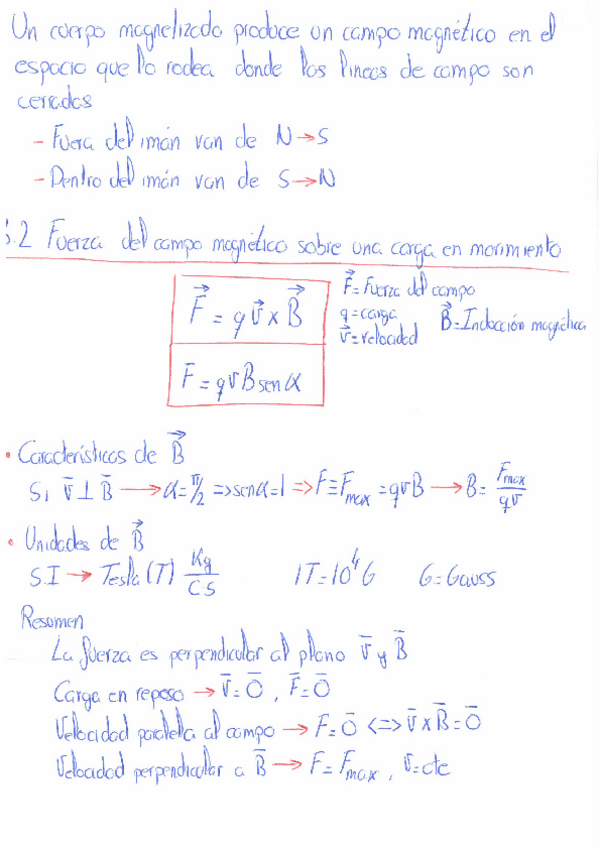 Un cuerpo magnetizado produce un campo magnético en el
espacio que lo rodea donde las lineas de campo son
cerradas
- Fuera del imán van de N→S
- Dentro del imán van de S→N
5.2 Fuerza del campo magnético sobre una carga en movimiento
F⃗ = q v⃗ x B⃗
F⃗ = Fuerza del campo
q = carga
v⃗ = velocidad
B⃗ = Inducción magnética
F̄ = qvB sen α
• Características de B⃗
Si v̄ ⊥ B̄ → α = π/2 => sen α = 1 => F ≡ Fmax = qvB → B = Fmax/qv
• Unidades de B⃗
S.I → Tesla (T) Kg/Cs 1T = 10⁴G G = Gauss
Resumen
La fuerza es perpendicular al plano v̄ y B̄
Carga en reposo → v̄ = 0̄, F̄ = 0̄
Velocidad paralela al campo → F = 0̄ <=> v̄ x B̄ = 0̄
Velocidad perpendicular a B̄ → F = Fmax, v̄ = cte